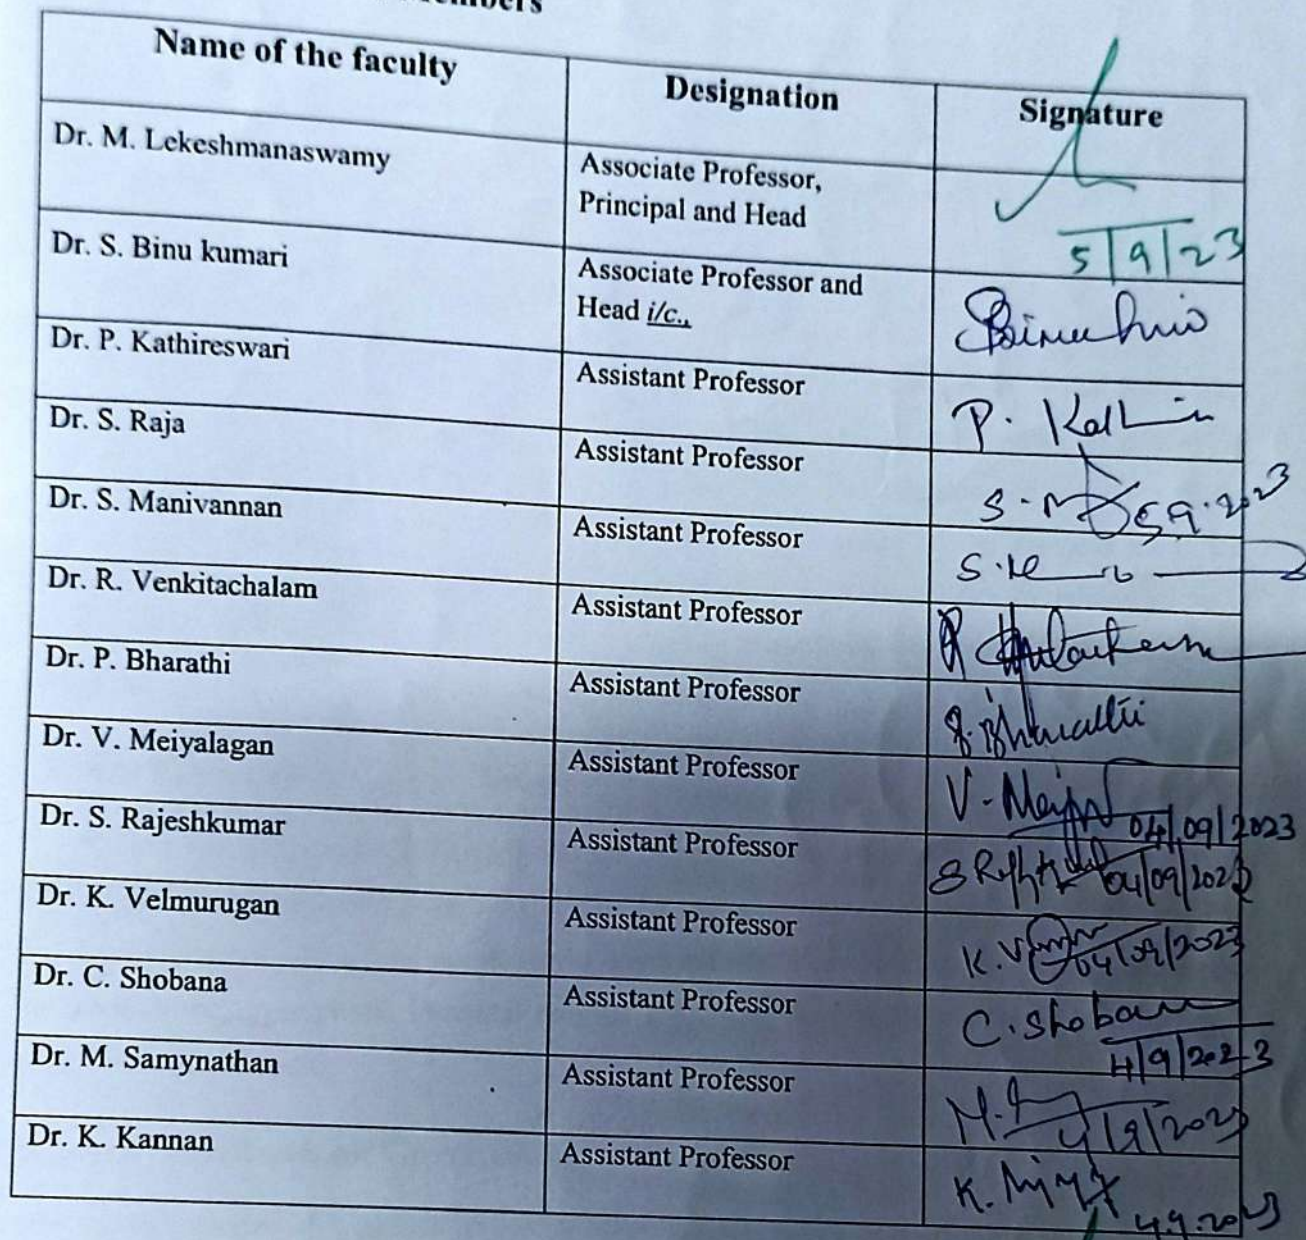 Name of the faculty Designation Signature
Dr. M. Lekeshmanaswamy Associate Professor,
Principal and Head
5/9/23
Dr. S. Binu kumari Associate Professor and
Head i/c.,
Dr. P. Kathireswari Assistant Professor
Dr. S. Raja Assistant Professor 5.9.2023
Dr. S. Manivannan Assistant Professor
Dr. R. Venkitachalam Assistant Professor
Dr. P. Bharathi Assistant Professor
Dr. V. Meiyalagan Assistant Professor 04/09/2023
Dr. S. Rajeshkumar Assistant Professor 04/09/2023
Dr. K. Velmurugan Assistant Professor 04/09/2023
Dr. C. Shobana Assistant Professor C. Shobana
4/9/2023
Dr. M. Samynathan Assistant Professor 4/9/2023
Dr. K. Kannan Assistant Professor
4.9.2023